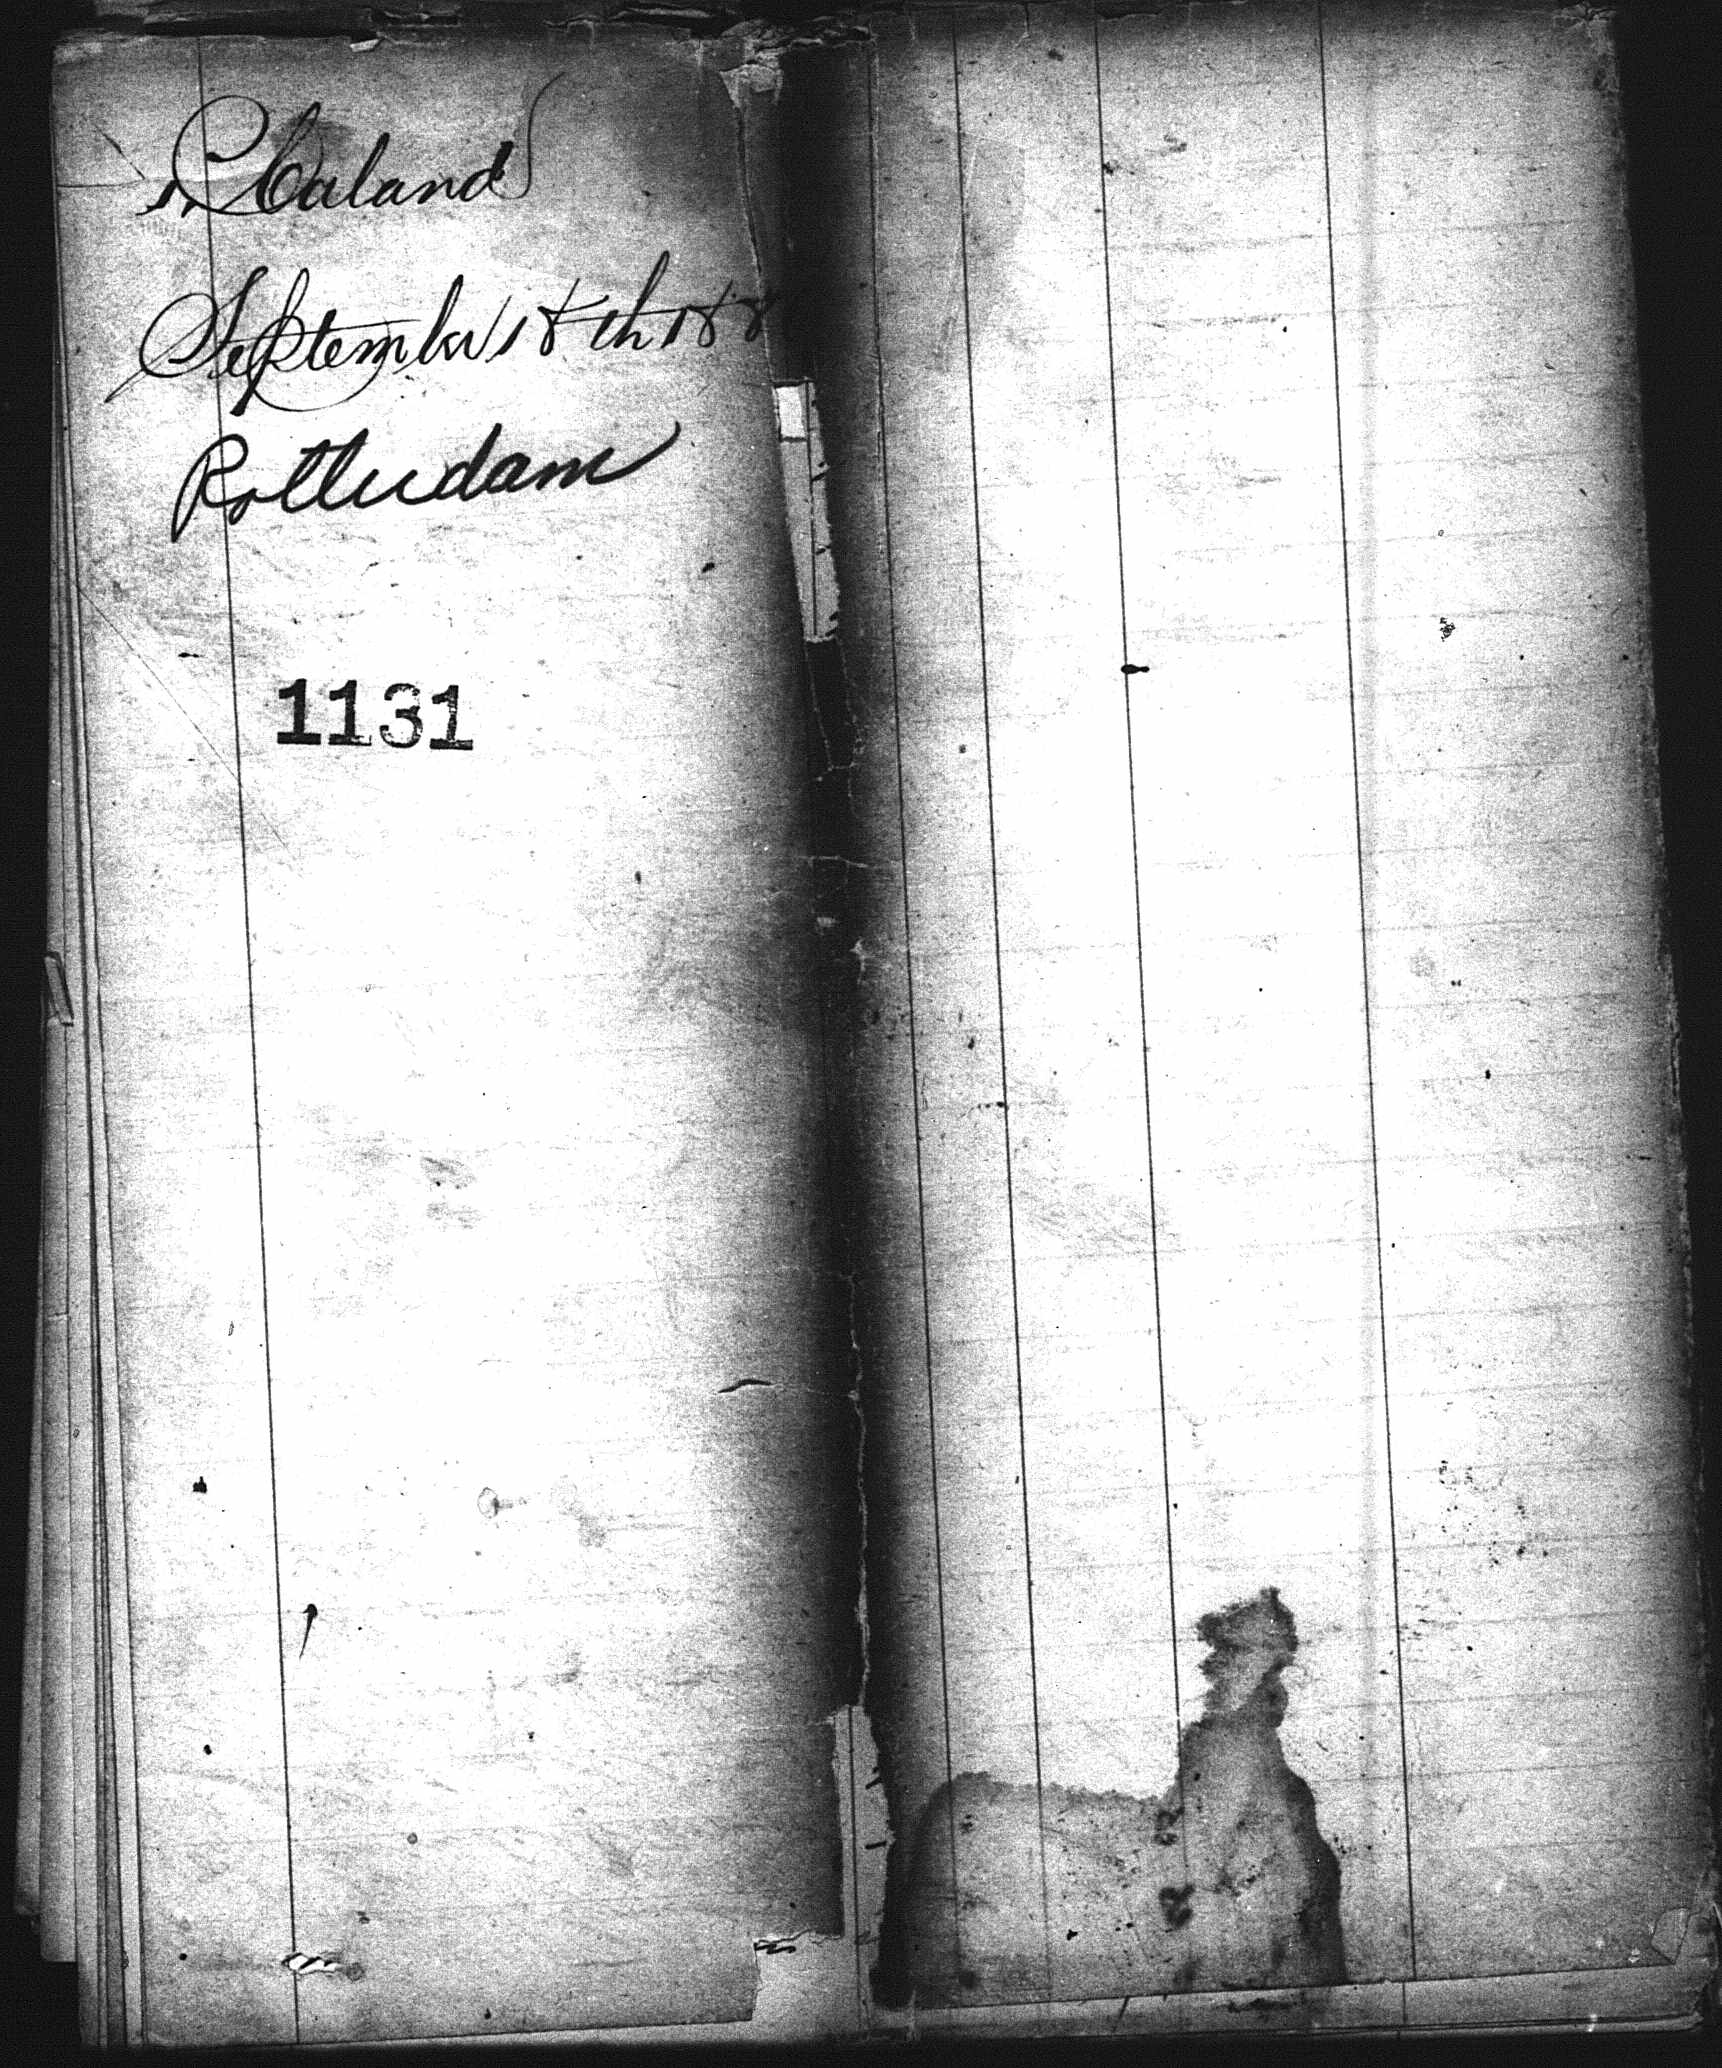 P. Caland
September 18th 188
Rotterdam
1131